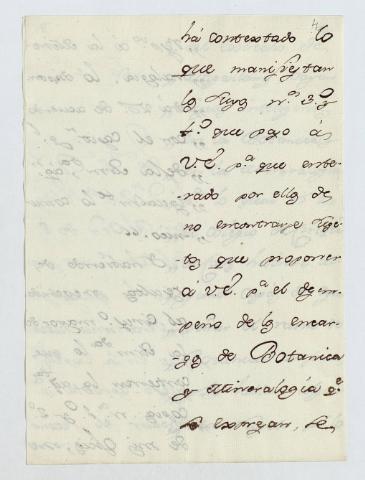 4
ha contextado lo
que manifiestan
los Ofizs n.os 3.o y
4.o que paso à
V.E. p.a que ente-
rado por ellos de
no encontrarse suge-
tos que proponer
à V.E. p.a el desem-
peño de los encar-
gos de Botanica
y Mineralogía q.e
se expresan, se